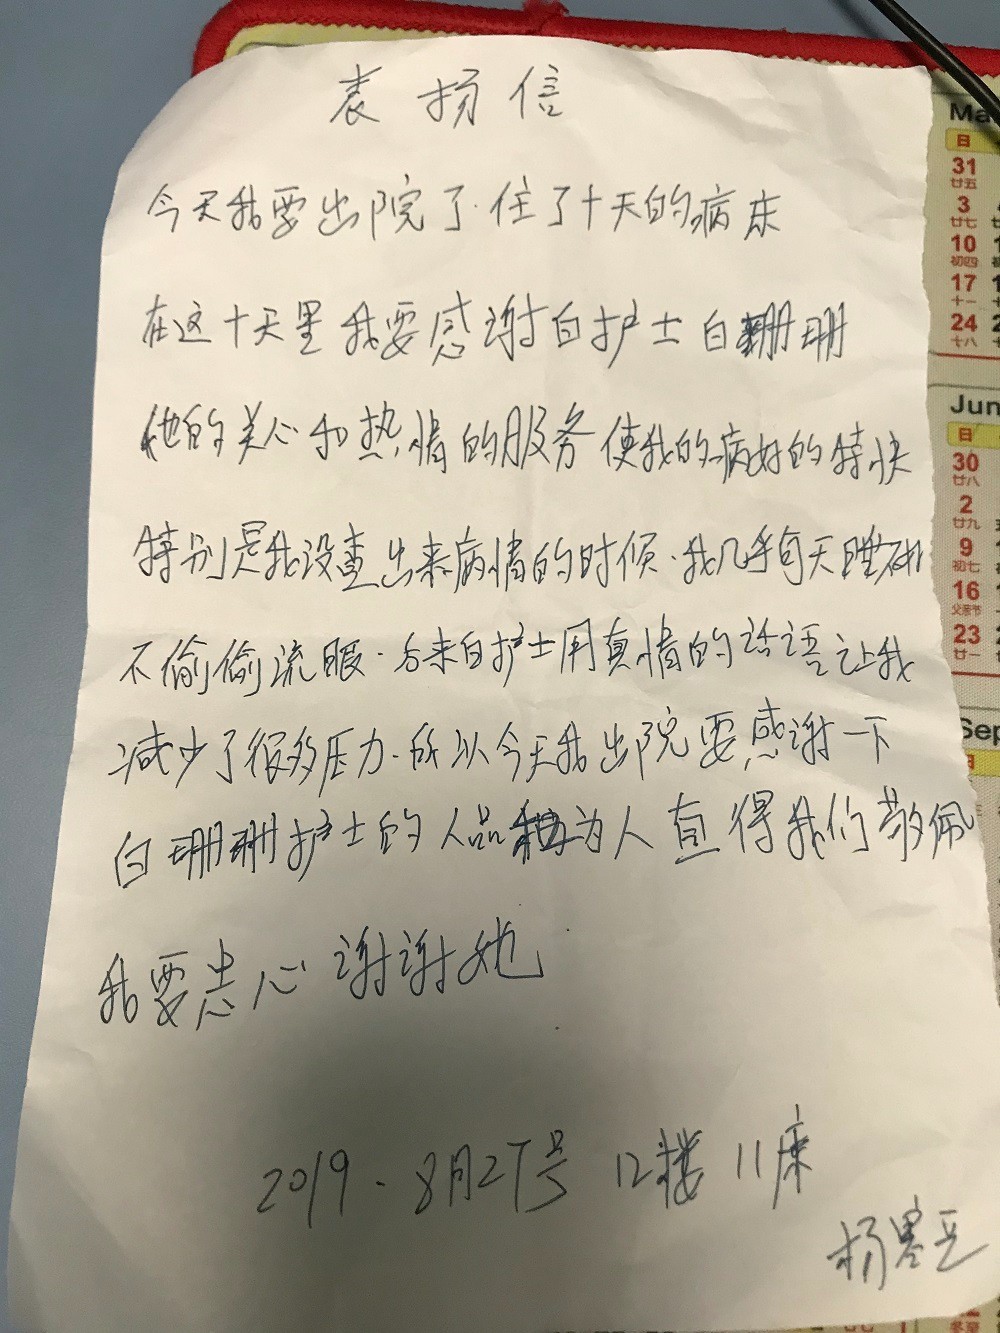 表扬信
今天我要出院了.住了十天的病床
在这十天里我要感谢白护士白珊珊
他的关心和热情的服务使我的病好的特快
特别是我没查出来病情的时候.我几乎每天
不偷偷流眼.后来白护士用真情的话语让我
减少了很多压力.所以今天我出院要感谢一下
白珊珊护士的人品和为人直得我们敬佩
我要忠心谢谢她
2019.8月27号 12楼 11床
杨
Ma
日
31
廿五
3
廿七
10
初四
17
十一
24
十八
Jun
日
30
廿八
2
廿九
9
初七
16
父亲节
23
廿一
Sep
日